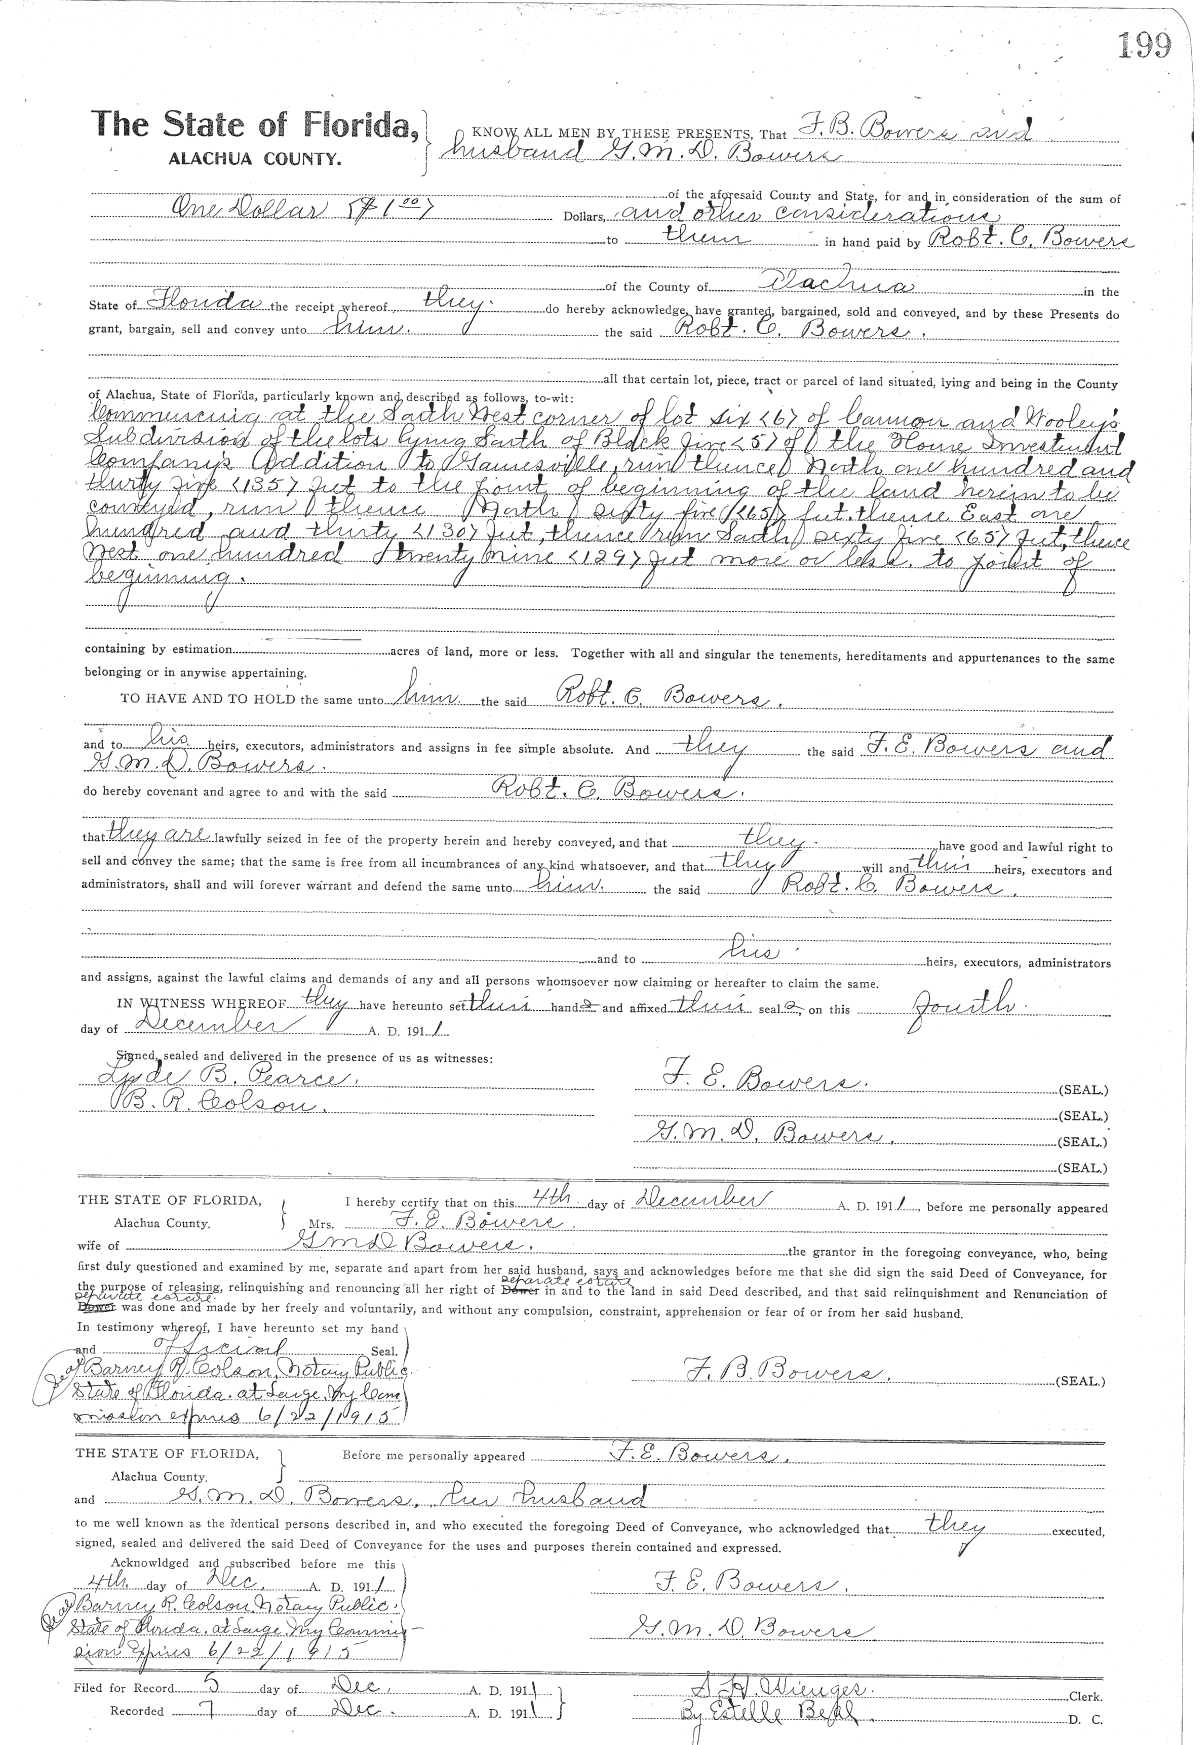 199
The State of Florida,
ALACHUA COUNTY.
KNOW ALL MEN BY THESE PRESENTS, That F. B. Bowers and
husband G. M. D. Bowers
of the aforesaid County and State, for and in consideration of the sum of
One Dollar <$1 00> Dollars, and other considerations
to them in hand paid by Robt. C. Bowers
of the County of Alachua in the
State of Florida the receipt whereof they do hereby acknowledge, have granted, bargained, sold and conveyed, and by these Presents do
grant, bargain, sell and convey unto him. the said Robt. C. Bowers.
all that certain lot, piece, tract or parcel of land situated, lying and being in the County
of Alachua, State of Florida, particularly known and described as follows, to-wit:
Commencing at the South West corner of lot six <6> of Cannon and Wooley's
Subdivision of the lots lying South of Block five <5> of the Home Investment
Company's Addition to Gainesville, run thence North one hundred and
thirty five <135> feet to the point of beginning of the land herein to be
conveyed, run thence North sixty five <65> feet. thence East one
hundred and thirty <130> feet, thence run South sixty five <65> feet, thence
West one hundred twenty nine <129> feet more or less. to point of
beginning.
containing by estimation acres of land, more or less. Together with all and singular the tenements, hereditaments and appurtenances to the same
belonging or in anywise appertaining.
TO HAVE AND TO HOLD the same unto him the said Robt. C. Bowers.
and to his heirs, executors, administrators and assigns in fee simple absolute. And they the said F. E. Bowers and
G. M. D. Bowers.
do hereby covenant and agree to and with the said Robt. C. Bowers.
that they are lawfully seized in fee of the property herein and hereby conveyed, and that they. have good and lawful right to
sell and convey the same; that the same is free from all incumbrances of any kind whatsoever, and that they will and their heirs, executors and
administrators, shall and will forever warrant and defend the same unto him. the said Robt. C. Bowers.
and to his heirs, executors, administrators
and assigns, against the lawful claims and demands of any and all persons whomsoever now claiming or hereafter to claim the same.
IN WITNESS WHEREOF they have hereunto set their hands and affixed their seals, on this fourth.
day of December A. D. 1911.
Signed, sealed and delivered in the presence of us as witnesses:
Lyde B. Pearce.
B. R. Colson.
F. E. Bowers. (SEAL.)
(SEAL.)
G. M. D. Bowers. (SEAL.)
(SEAL.)
THE STATE OF FLORIDA,
Alachua County.
I hereby certify that on this 4th. day of December A. D. 1911, before me personally appeared
Mrs. F. E. Bowers.
wife of G M D Bowers. the grantor in the foregoing conveyance, who, being
first duly questioned and examined by me, separate and apart from her said husband, says and acknowledges before me that she did sign the said Deed of Conveyance, for
separate estate
the purpose of releasing, relinquishing and renouncing all her right of Dower in and to the land in said Deed described, and that said relinquishment and Renunciation of
separate estate.
Dower was done and made by her freely and voluntarily, and without any compulsion, constraint, apprehension or fear of or from her said husband.
In testimony whereof, I have hereunto set my hand
and official Seal.
Seal Barney R. Colson, Notary Public.
State of Florida. at Large. My Com
mission expires 6/22/1915
F. B. Bowers. (SEAL.)
THE STATE OF FLORIDA,
Alachua County.
Before me personally appeared F. E. Bowers.
and G. M. D. Bowers, her husband
to me well known as the identical persons described in, and who executed the foregoing Deed of Conveyance, who acknowledged that they executed,
signed, sealed and delivered the said Deed of Conveyance for the uses and purposes therein contained and expressed.
Acknowldged and subscribed before me this
4th day of Dec. A. D. 1911.
Seal Barney R. Colson. Notary Public.
State of Florida. at Large My Commis-
sion Expires 6/22/1915
F. E. Bowers.
G. M. D. Bowers
Filed for Record 5 day of Dec. A. D. 1911
Recorded 7 day of Dec. A. D. 1911
S. H. Wienges. Clerk.
By Estelle D. C.